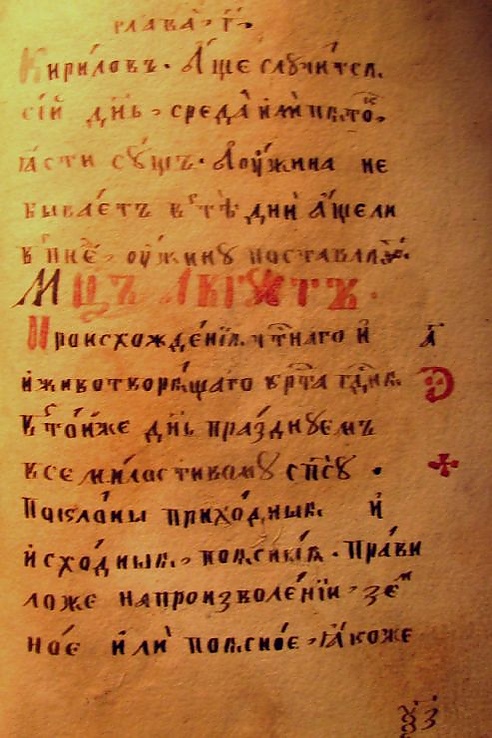 глава̀. г҃і.
Кири́ловъ. А҆́ще случи́тсѧ
сі́й дн҃ь, среда̀ и҆лѝ пѧто́к,
ꙗсти сꙋщъ. А оу҆́жина не
быва́етъ в тѣ днѝ а҆́щели
в пнⷣе, оу҆́жинꙋ поставлѧ́
Мцⷭ҇ъ Авгꙋстъ.
Происхожде́нїѧ чⷭ҇тнаго и҆̀
и҆животворѧ́щаго крⷭ҇та гдⷭ҇нѧ.
В то́йже дн҃ь пра́зднꙋемъ
всемлⷭ҇тивомꙋ сп҃сꙋ.
Покло́ны прихо́дныѧ и҆̀
и҆схо́дныѧ, поѧснїѧ. Пра́ви
ложе напроизволе́нїи, зе
но́е и҆лѝ поѧсно́е, ꙗ҆́коже